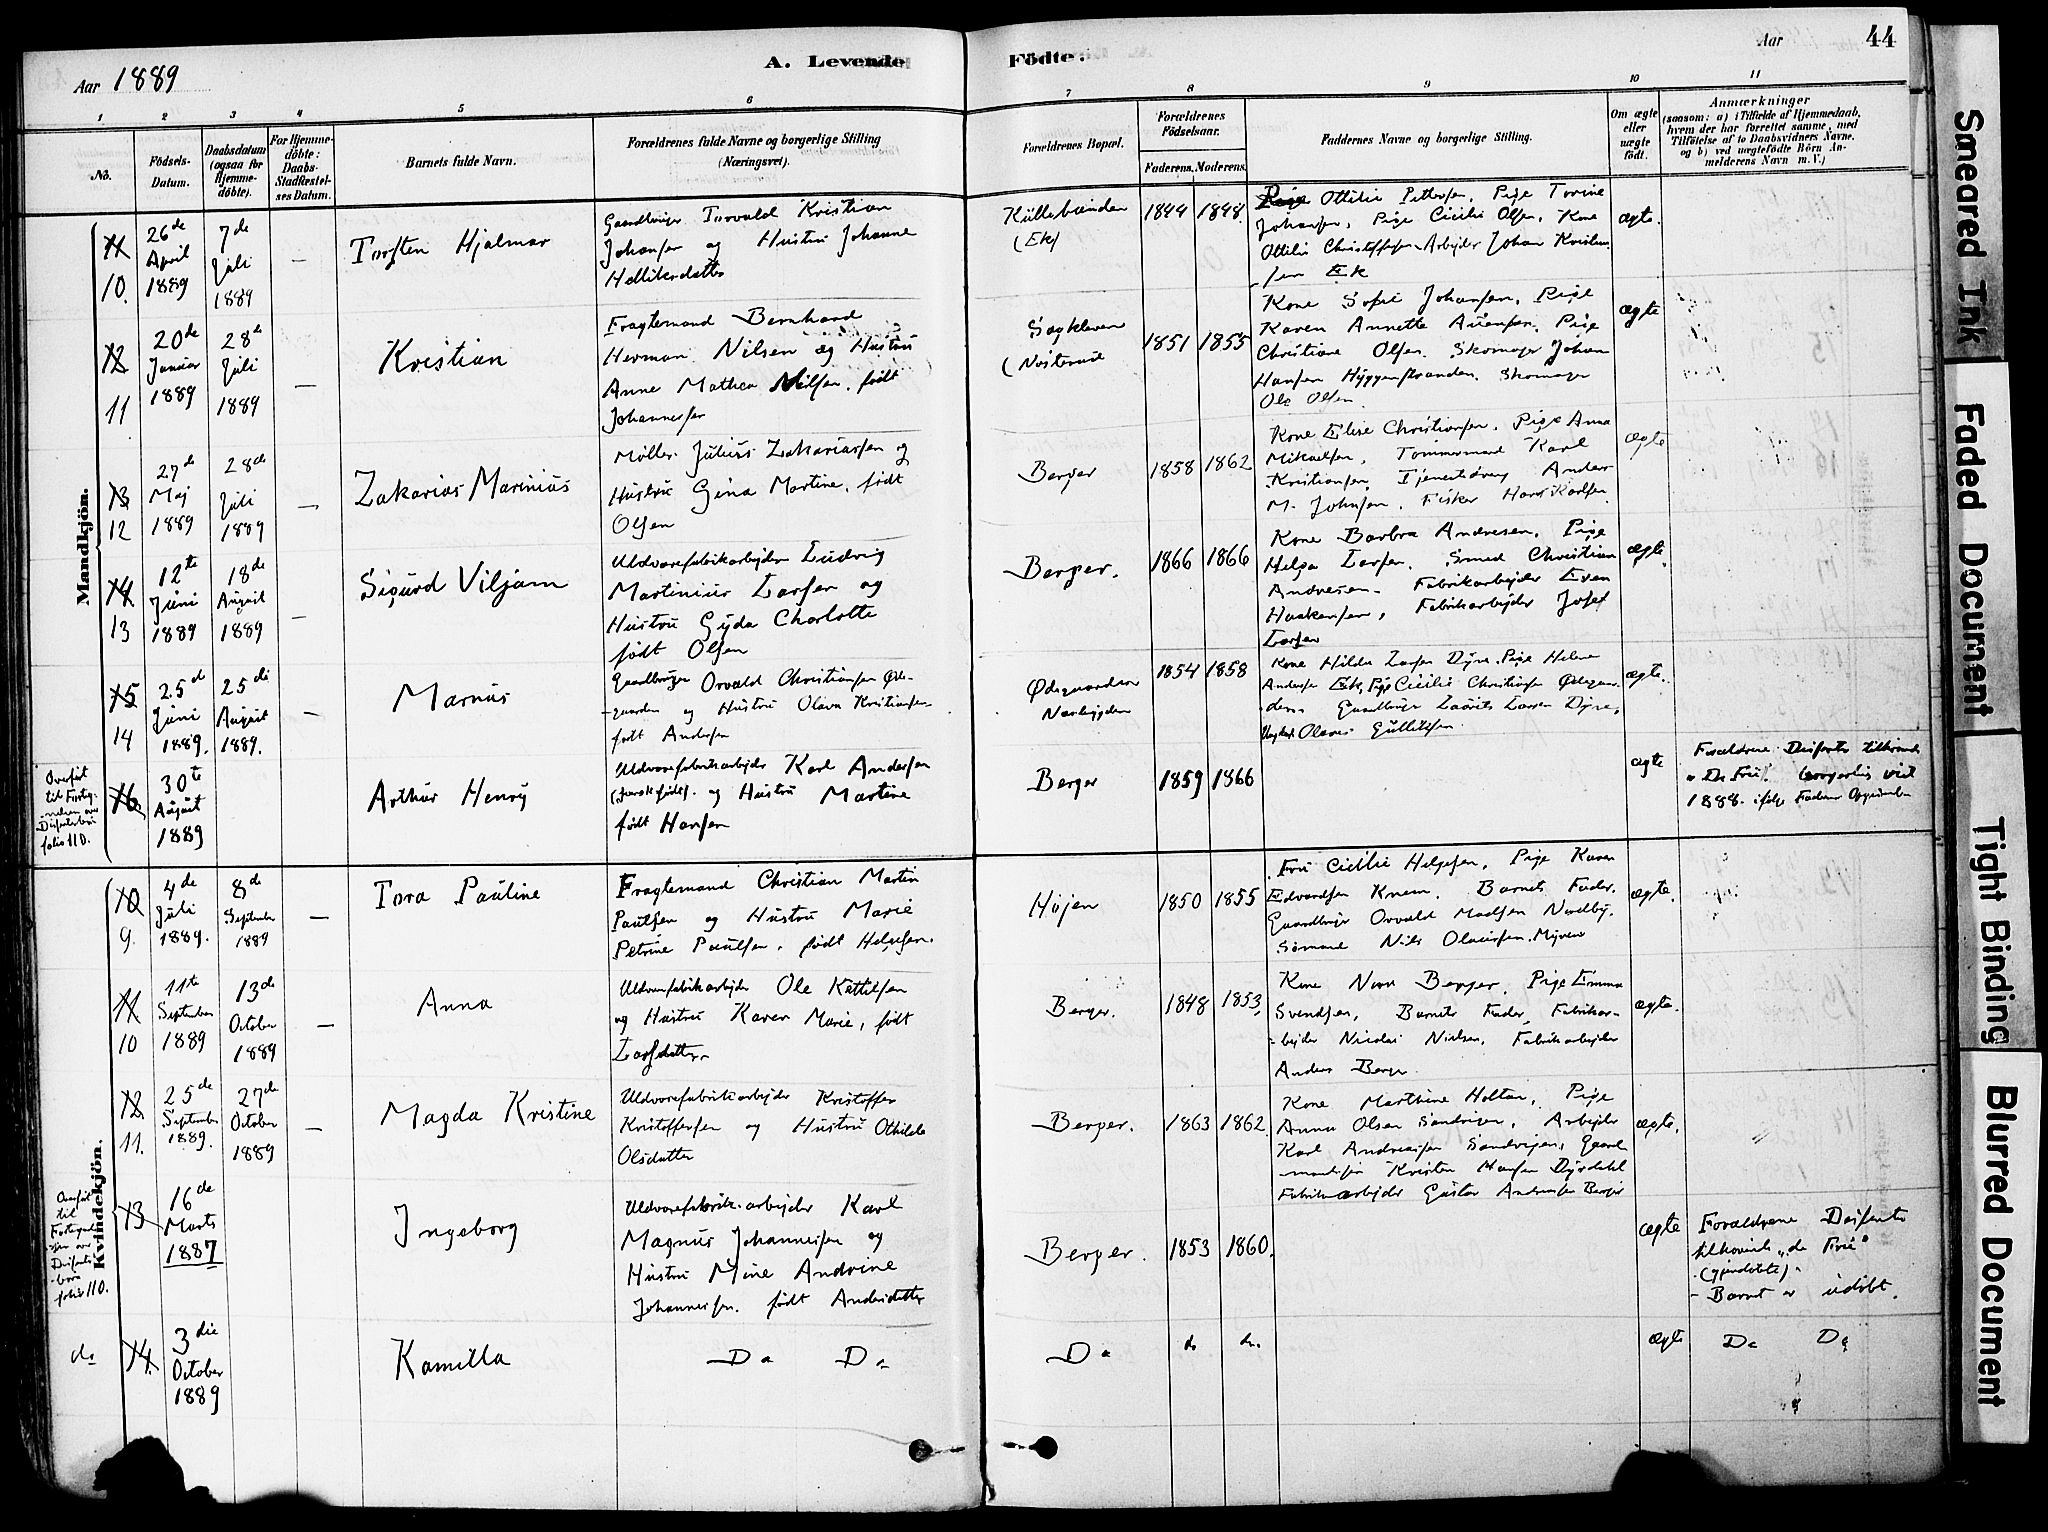 Aar 1889
A. Levende Födte.
Aar
44
1
2
3
4
5
6
7
8
9
10
11
No.
Födsels-
Datum.
Daabsdatum
(ogsaa for
Hjemme-
döbte).
For Hjemme-
döbte:
Daabs-
Stadfæstel-
ses Datum.
Barnets fulde Navn.
Forældrenes fulde Navne og borgerlige Stilling
(Næringsvei).
Forældrenes Bopæl.
Forældrenes
Födselsaar.
Faderens.
Moderens.
Faddernes Navne og borgerlige Stilling.
Om ægte
eller
uægte
født.
Anmærkninger
(saasom: a) i Tilfælde af Hjemmedaab,
hvem der har forrettet samme, med
Tilføielse af to Daabsvidners Navne,
og b) ved uægtefødte Börn An-
melderens Navn m. V.)
Mandkjön.
11
10.
26de
April
1889
7de
Juli
1889
—
Torsten Hjalmar
Gaardbruger Torvald Kristian
Johansen og Hustru Johanne
Hellikesdatter
Küllebunden
(Ek)
1844
1848.
Pige Ottilie Pettersen, Pige Torine
Johansen, Pige Cicilie Olsen, Kone
Ottilie Christoffersen Arbejder Johan Kristian-
sen Ek
ægte.
12
11
20de
Januar
1889
28de
Juli
1889
—
Kristian
Fragtemand Bernhard
Herman Nilsen og Hustru
Anne Mathea Nilsen, født
Johannesen
Sagkleven
1851
1855
Kone Sofie Johansen, Pige
Karen Annette Pige
Christiane Olsen. Skomager Johan
Hansen Hyggenstranden, Skomager
Ole Olsen.
ægte
13
12
27de
Maj
1889
28de
Juli
1889
—
Zakarias Marinius
Møller Julius Zakariassen og
Hustru Gina Martine, født
Olsen
Berger
1858
1862
Kone Elise Christiansen, Pige Anna
Mikaelsen, Tømmermand Karl
Kristiansen, Tjenestedreng Anders
M. Johnsen, Fisker Hans Karlsen.
ægte
14
13
12te
Juni
1889
18de
August
1889
—
Sigurd Viljam
Uldvarefabrikarbejder Ludvig
Martinius Larsen og
Hustru Gyda Charlotte
født Olsen
Berger.
1866
1866
Kone Barbra Andresen, Pige
Helga Larsen. Smed Christian
Andresen. Fabrikarbejder Even
Haakensen, Fabrikarbejder Josef
Larsen
ægte.
15
14
25de
Juni
1889.
25de
August
1889.
—
Marius
Gaardbruger Orvald Christiansen Øde-
gaarden og Hustru Olava Kristiansen
født Andersen
Ødegaarden
Nordbygden
1854
1858
Kone Hilda Larsen Dyre, Pige Helene
Andersen Ek, Pige Cicilie Christiansen Ødegaar-
den. Gaardbruger Laurits Larsen Dyre,
Ungkarl Olaves Gulliksen.
ægte.
Overført
til Forteg-
nelsen over
Dissenterbørn
folio 110.
16
30te
August
1889
Arthur Henry
Uldvarefabrikarbejder Karl Andersen
(svensk født). og Hustru Martine
født Hansen
Berger
1859
1866
ægte
Forældrene Dissenter tilhørende
„De Frie". borgerlig viet
1888. ifølge Faderens Opgivende
Kvindekjön.
10
9.
4de
Juli
1889.
8de
September
1889
—
Tora Pauline
Fragtemand Christian Martin
Paulsen og Hustru Marie
Petrine Paulsen, født Helgesen.
Højen
1850
1855
Fru Cicilie Helgesen, Pige Karen
Edvardsen Knem. Barnets Fader.
Gaardbruger Orvald Madsen Nordby.
Sømand Nils Olausen. Myren
ægte.
11
10
11te
September
1889
13de
October
1889
—
Anna
Uldvarefabrikarbejder Ole Kettilsen
og Hustru Karen Marie, født
Larsdatter
Berger.
1848
1853,
Kone Nora Berger, Pige Emma
Svendsen, Barnets Fader, Fabrikar-
bejder Nicolai Nielsen, Fabrikarbejder
Anders Berger
ægte.
12
11.
25de
September
1889.
27de
October
1889
—
Magda Kristine
Uldvarefabrikarbejder Kristoffer
Kristoffersen og Hustru Othilde
Olsdatter
Berger.
1863
1862.
Kone Marthine Holtan, Pige
Anna Olsen Sandvigen, Arbejder
Karl Andreassen Sandvigen, Gaard-
mandssøn Kristen Hansen Dyrdahl
Fabrikarbejder Gustav Andersen Berger
ægte.
Overført
til
Fortegnel-
sen over
Dissenter-
børn
folio 110.
13
16de
Marts
1887
Ingeborg
Uldvarefabrik-arbejder Karl
Magnus Johannessen og
Hustru Mine Andrine
Johannessen. født Andersdatter
Berger.
1853
1860.
ægte
Forældrene Dissenter
tilhørende „de Frie"
(gjendøbte)
Barnet er udøbt.
do
14.
3die
October
1889
Kamilla
Do Do
Do
do
do.
ægte
Do Do
Smeared Ink
Faded Document
Tight Binding
Blurred Document